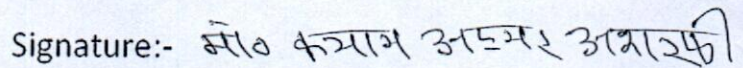 Signature:- मो० कयाम अहमद अशरफी